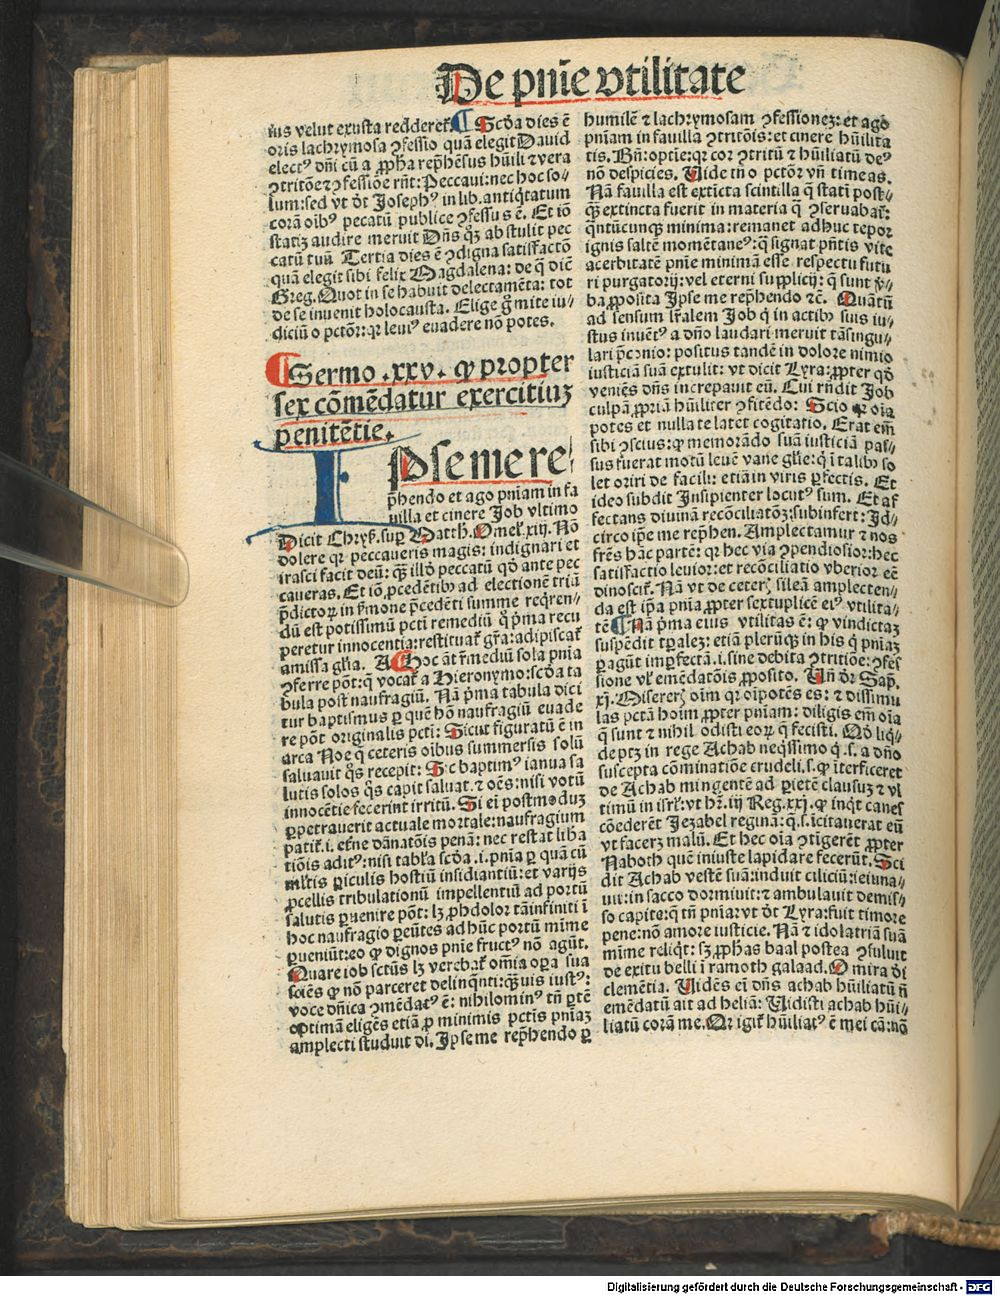 De pnīe vtilitate
ius velut exusta redderet̄. ¶ Scda dies ē
oris lachrymosa ꝯfessio quā elegit Dauid
elect⁹ dn̄i cū a ꝓpha rep̄hēsus hūili ⁊ vera
ꝯtritōe ⁊ ꝯfessiōe rn̄t: Peccaui: nec hoc so-
lum: sed vt dt Joseph⁹ in lib. antiq̄tatum
corā oib⁹ pecatū publice ꝯfessus ē. Et iō
statiꝫ audire meruit Dn̄s qꝫ abstulit pec
catū tuū. Tertia dies ē ꝯdigna satisfactō
quā elegit sibi felix Magdalena: de q̄ dic̄
Greg. Quot in se habuit delectamēta: tot
de se inuenit holocausta. Elige g̊ mite iu-
diciū o pctōr: qr leui⁹ euadere nō potes.
¶ Sermo .xxv. ꝙ propter
sex cōmēdatur exercitiuꝫ
penitētie.
IPse me re
p̄hendo et ago pnīam in fa
uilla et cinere Job vltimo
Dicit Chryß. suꝑ Matth. Omel̄. xiij. Nō
dolere qr peccaueris magis: indignari et
irasci facit deū: q̄ꝫ illd̓ peccatū qd̓ ante pec
caueras. Et iō ꝓcedētibꝰ ad electionē triū
p̄dictoꝝ in ßmone p̄cedēti summe reqren-
dū est potissimū pcti remediū q̊ p̄ma recu
peretur innocentia: restituat̄ gr̄a: adipiscat̄
amissa gl̄ia. A ¶ Hoc āt r̄mediū sola pnīa
ꝯferre pōt: q̄ vocat̄ a Hieronymo: scda ta
bula post naufragiū. Nā p̄ma tabula dici
tur baptismus ꝑ quē hō naufragiū euade
re pōt originalis pcti: Sicut figuratū ē in
arca Noe q̄ ceteris oibus summersis solū
saluauit q̊s recepit: Sic baptim⁹ ianua sa
lutis solos q̊s capit saluat. ⁊ oēs: nisi votū
innocētie fecerint irritū. Si ei postmoduꝫ
ꝑpetrauerit actuale mortale: naufragium
patit̄. i. et̄ne dānatōis penā: nec restat libā
tiōis adit⁹: nisi tabl̄a scda .i. pnīa ꝑ quā cū
ml̄tis ꝑiculis hostiū insidiantiū: et varijs
ꝓcellis tribulationū impellentiū ad portū
salutis ꝑuenire pōt: lꝫ ꝓhdolor tā infiniti ī
hoc naufragio ꝑeūtes ad hūc portū mīme
ꝑueniūt: eo ꝙ dignos pnīe fruct⁹ nō agūt.
Quare iob sct̄us lꝫ verebat̄ om̄ia oꝑa sua
sciēs ꝙ nō parceret delinqn̄ti: q̄ꝫuis iust⁹:
voce dn̄ica ꝯmēdat⁹ ē: nihilomin⁹ tn̄ ꝑtē
optimā eligēs etiā ꝓ minimis pctīs pnīaꝫ
amplecti studuit di. Ipse me rep̄hendo ꝑ
humilē ⁊ lachrymosam ꝯfessionez: et ago
pnīam in fauilla ꝯtritōis: et cinere hūilita
tis. Bn̄: optie: qr cor ꝯtritū ⁊ hūiliatū de⁹
nō despicies. Vide tn̄ o pctōr vn̄ timeas.
Nā fauilla est extīcta scintilla q̄ statī post-
q̄ꝫ extincta fuerit in materia q̄ ꝯseruabat̄:
q̄ntūcunqꝫ minima: remanet adhuc tepor
ignis saltē momētane⁹: q̄ signat pn̄tis vite
acerbitatē pnīe minimā esse respectu futu
ri purgatorij: vel eterni supplicij: q̄ sunt ꝟ-
ba ꝓposita Ipse me rep̄hendo ⁊c̄. Quātū
ad sensum lr̄alem Job q̇ in actibꝰ suis iu-
stus inuēt⁹ a dn̄o laudari meruit tā singu-
lari p̄conio: positus tandē in dolore nimio
iusticiā suā extulit: vt dicit Lyra: ꝓpter qd̓
veniēs dn̄s increpauit eū. Cui rn̄dit Job
culpā ꝓpriā hūiliter ꝯfitēdo: Scio qr oīa
potes et nulla te latet cogitatio. Erat em̄
sibi ꝯscius: ꝙ memorādo suā iusticiā pas-
sus fuerat motū leuē vane gl̄ie: q̄ ī talibꝰ so
let oriri de facili: etiā in viris ꝑfectis. Et
ideo subdit Insipienter locut⁹ sum. Et af
fectans diuinā recōciliatōꝫ: subinfert: Id-
circo ip̄e me rep̄hen. Amplectamur ⁊ nos
fr̄es hāc partē: qr hec via ꝯpendiosior: hec
satisfactio leuior: et recōciliatio vberior eē
dinoscit̄. Nā vt de ceterꝭ sileā amplecten-
da est ip̄a pnīa ꝓpter sextuplicē ei⁹ vtilita-
tē ¶ Nā p̄ma eius vtilitas ē: ꝙ vindictaꝫ
suspēdit tꝑalez: etiā plerūqꝫ in his q̇ pnīaꝫ
ꝑagūt imꝑfectā. i. sine debita ꝯtritiōe: ꝯfes
sione vl̄ emēdatōis ꝓposito. Vn̄ dr̄ Sap̄.
xj. Misererꝭ oīm qr oīpotēs es: ⁊ dissimu
las pctā hoīm ꝓpter pnīam: diligis em̄ oīa
q̄ sunt ⁊ nihil odisti eoꝝ q̄ fecisti. Qd̓ liq-
de ptꝫ in rege Achab neqssimo q̇ .s. a dn̄o
suscepta cōminatiōe crudeli .s. ꝙ īterficeret
de Achab mingentē ad ꝑietē clausuꝫ ⁊ vl̄
timū in isrl̄: vt hr̄. iij Reg. xxj. ꝙ inqt canes
cōederēt Jezabel reginā: q̄ .s. īcitauerat eū
vt facerꝫ malū. Et hec oīa ꝯtigerēt ꝓpter
Naboth quē iniuste lapidare fecerūt. Sci
dit Achab vestē suā: induit ciliciū: ieiuna-
uit: in sacco dormiuit: ⁊ ambulauit demis-
so capite: q̄ tn̄ pnīa: vt dt Lyra: fuit timore
pene: nō amore iusticie. Nā ⁊ idolatriā suā
mīme reliqt: sꝫ ꝓphas baal postea ꝯsuluit
de exitu belli ī ramoth galaad. O mira di
clemētia. Vidēs ei dn̄s achab hūiliatū ⁊ n̄
emēdatū ait ad heliā: Vidisti achab hūi-
liatū corā me. Qr igit̄ hūiliat⁹ ē mei cā: nō
Digitalisierung gefördert durch die Deutsche Forschungsgemeinschaft - DFG